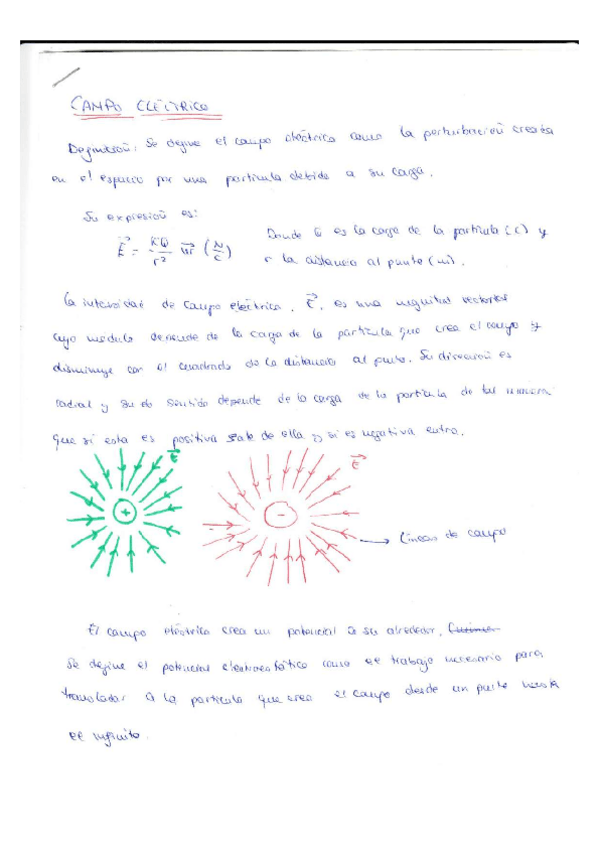 CAMPO ELÉCTRICO
Definición: Se define el campo eléctrico como la perturbación creada
en el espacio por una partícula debido a su carga.
Su expresión es:
E = KQ/r² ur (N/C)
Donde Q es la carga de la partícula (C) y
r la distancia al punto (m).
La intensidad de campo eléctrico, E, es una magnitud vectorial
cuyo módulo depende de la carga de la partícula que crea el campo y
disminuye con el cuadrado de la distancia al punto. Su dirección es
radial y su sentido depende de la carga de la partícula de tal manera
que si esta es positiva sale de ella y si es negativa entra.
E
E
+
-
Líneas de campo
El campo eléctrico crea un potencial a su alrededor.
Se define el potencial electroestático como el trabajo necesario para
transladar a la partícula que crea el campo desde un punto hasta
el infinito.